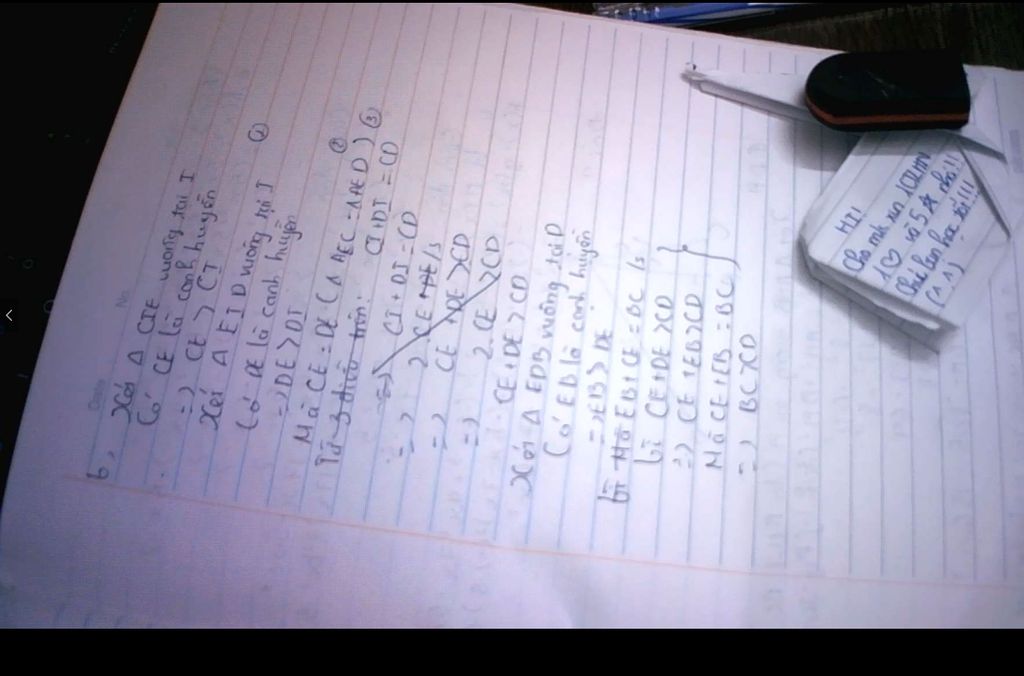 No.
Date
b, Xét Δ CIE vuông tại I
Có CE là cạnh huyền
=> CE > CI ①
Xét Δ EID vuông tại I
Có DE là cạnh huyền
=> DE > DI ②
Mà CE = DE (Δ AEC = Δ AED) ③
Từ 3 điều trên: CI + DI = CD
=> CI + DI = CD
=> 2 CE
=> CE + DE > CD
=> 2 CE > CD
CE + DE > CD
Xét Δ EDB vuông tại D
Có EB là cạnh huyền
=> EB > DE
Mà EB + CE = BC
CE + DE > CD
=> CE + EB > CD
Mà CE + EB = BC
=> BC > CD
HI!
Cho mk xin 1CTLHN
1♡ và 5☆ nhé!!
Chúc bạn học tốt!!!
(^^)